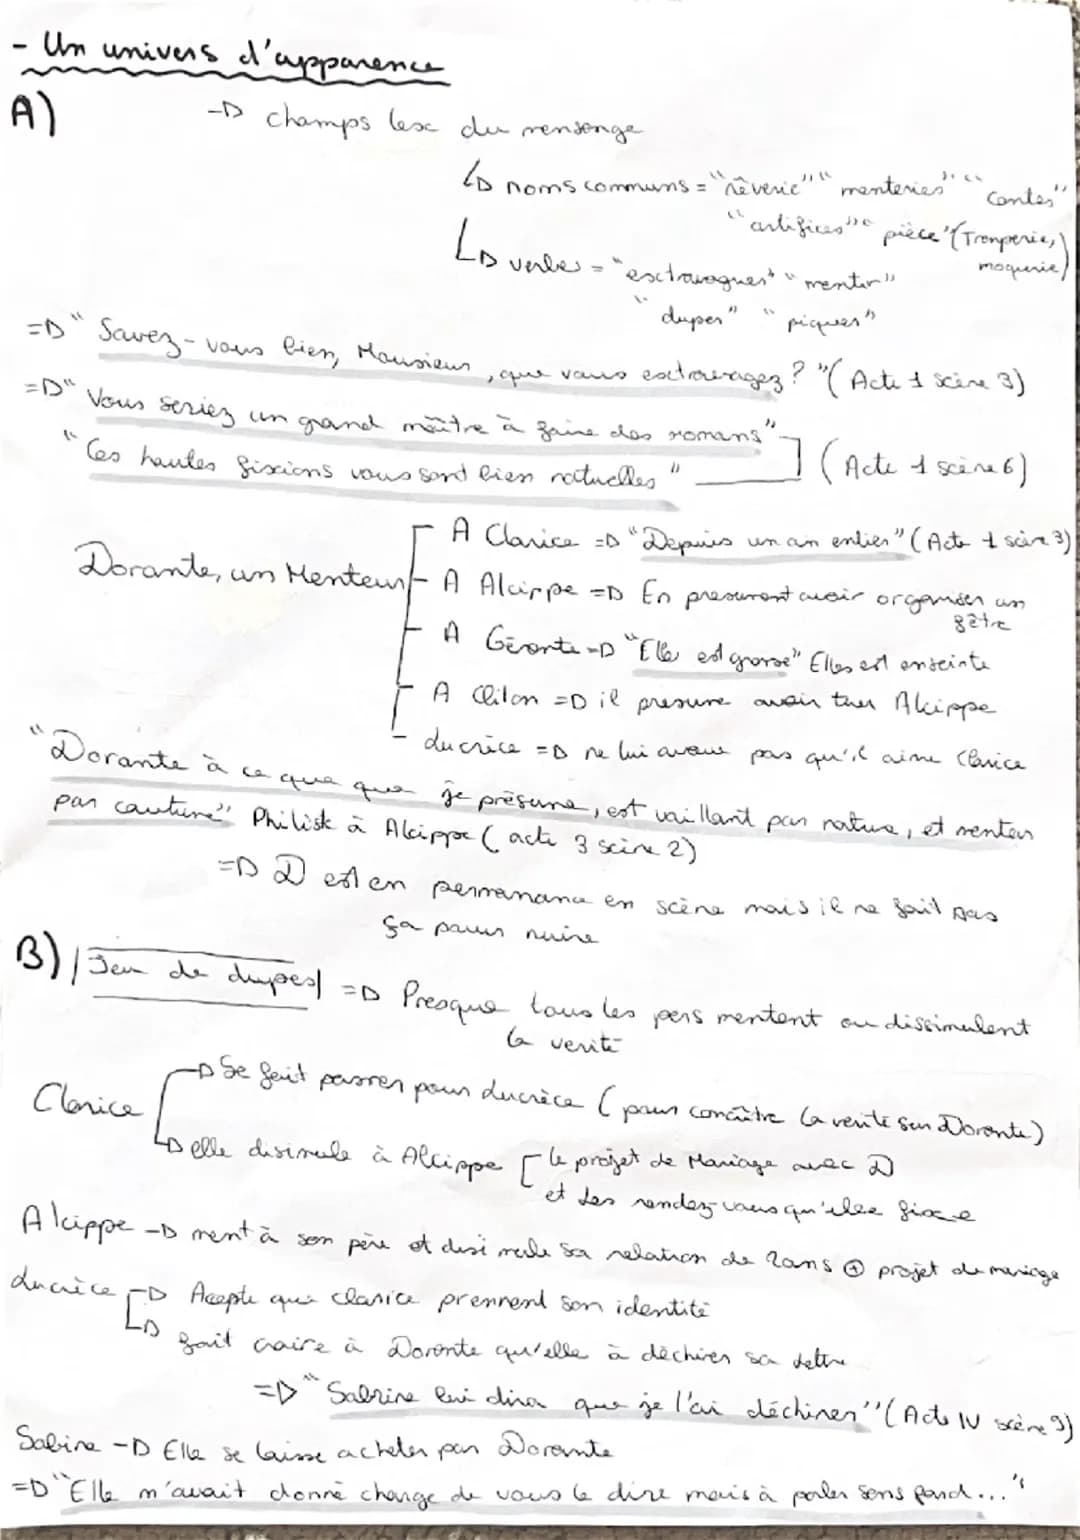 - Un univers d'apparence
A)
-D champs lesc du mensonge
↳D noms communs = "rêverie" "menteries" "contes"
"artifices" "pièce" (Tromperie, moquerie)
↳D verbes = "esctravaguer" "mentir"
"duper" "piquer"
=D "Savez-vous bien, Monsieur, que vous esctravagez ?" (Acte 1 scène 3)
=D "Vous seriez un grand maître à faire des romans"
"Ces hautes fixcions vous sont bien naturelles" ] (Acte 1 scène 6)
Dorante, un Menteur
A Clarice =D "Depuis un an entier" (Acte 1 scène 3)
A Alcippe =D En presument avoir organiser un fête
A Géronte =D "Elle est grosse" Elles est enseinte
A Cliton =D il presume avoir tuer Alcippe
Lucrice =D ne lui avoue pas qu'il aime Clarice
"Dorante à ce que que je présume, est vaillant par nature, et menteur
par coutume" Philiste à Alcippe (acte 3 scène 2)
=D D est en permanance en scène mais il ne fait pas
ça pour nuire
B) | Jeu de dupes | =D Presque tous les pers mentent ou dissimulent
la verité
Clarice
-D Se fait passer pour Lucrèce (pour connaître la verite sur Dorante)
↳D elle disimule à Alcippe [ le projet de Mariage avec D
et des rendez-vous qu'elle fixe
Alcippe -D ment à son père et disimule sa relation de 2ans ⊕ projet de mariage
Lucrèce -D Acepte que Clarice prennent son identité
↳D fait craire à Doronte qu'elle à déchirer sa lettre
=D "Sabrine lui dira que je l'ai déchirer" (Acte IV scène 9)
Sabine -D Elle se laisse acheter par Dorante
=D "Elle m'avait donné charge de vous le dire mais à parler sans fard..."